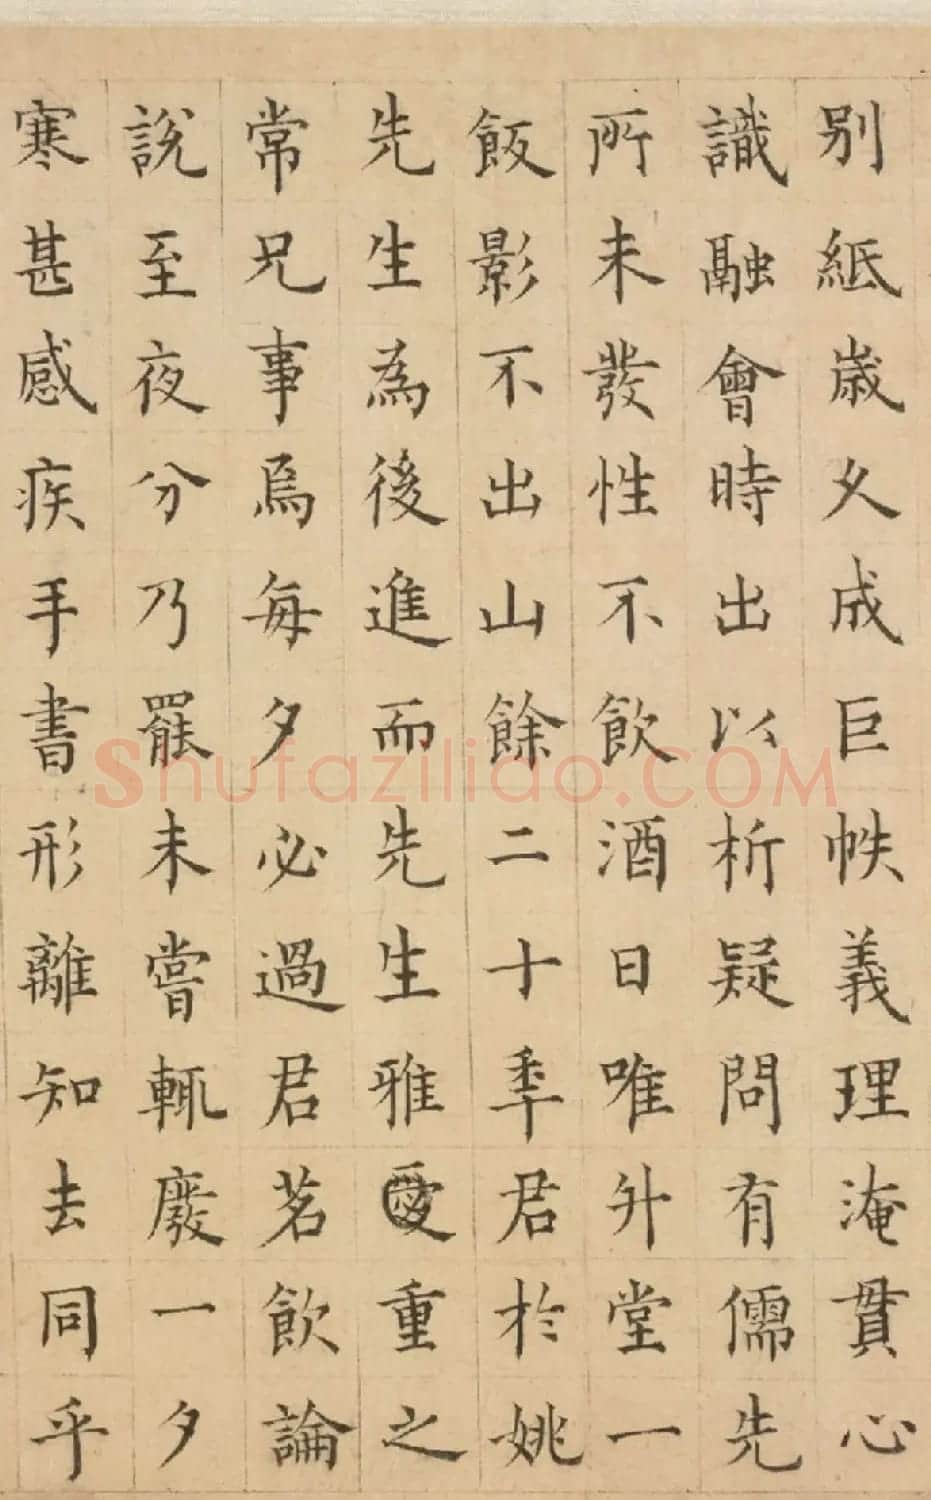 別紙歳久成巨帙義理淹貫心
識融會時出以析疑問有儒先
所未發性不飲酒日唯升堂一
飯影不出山餘二十秊君於姚
先生為後進而先生雅愛重之
常兄事焉每夕必過君茗飲論
說至夜分乃罷未嘗輒廢一夕
寒甚感疾手書形離知去同乎
shufaziliao.COM